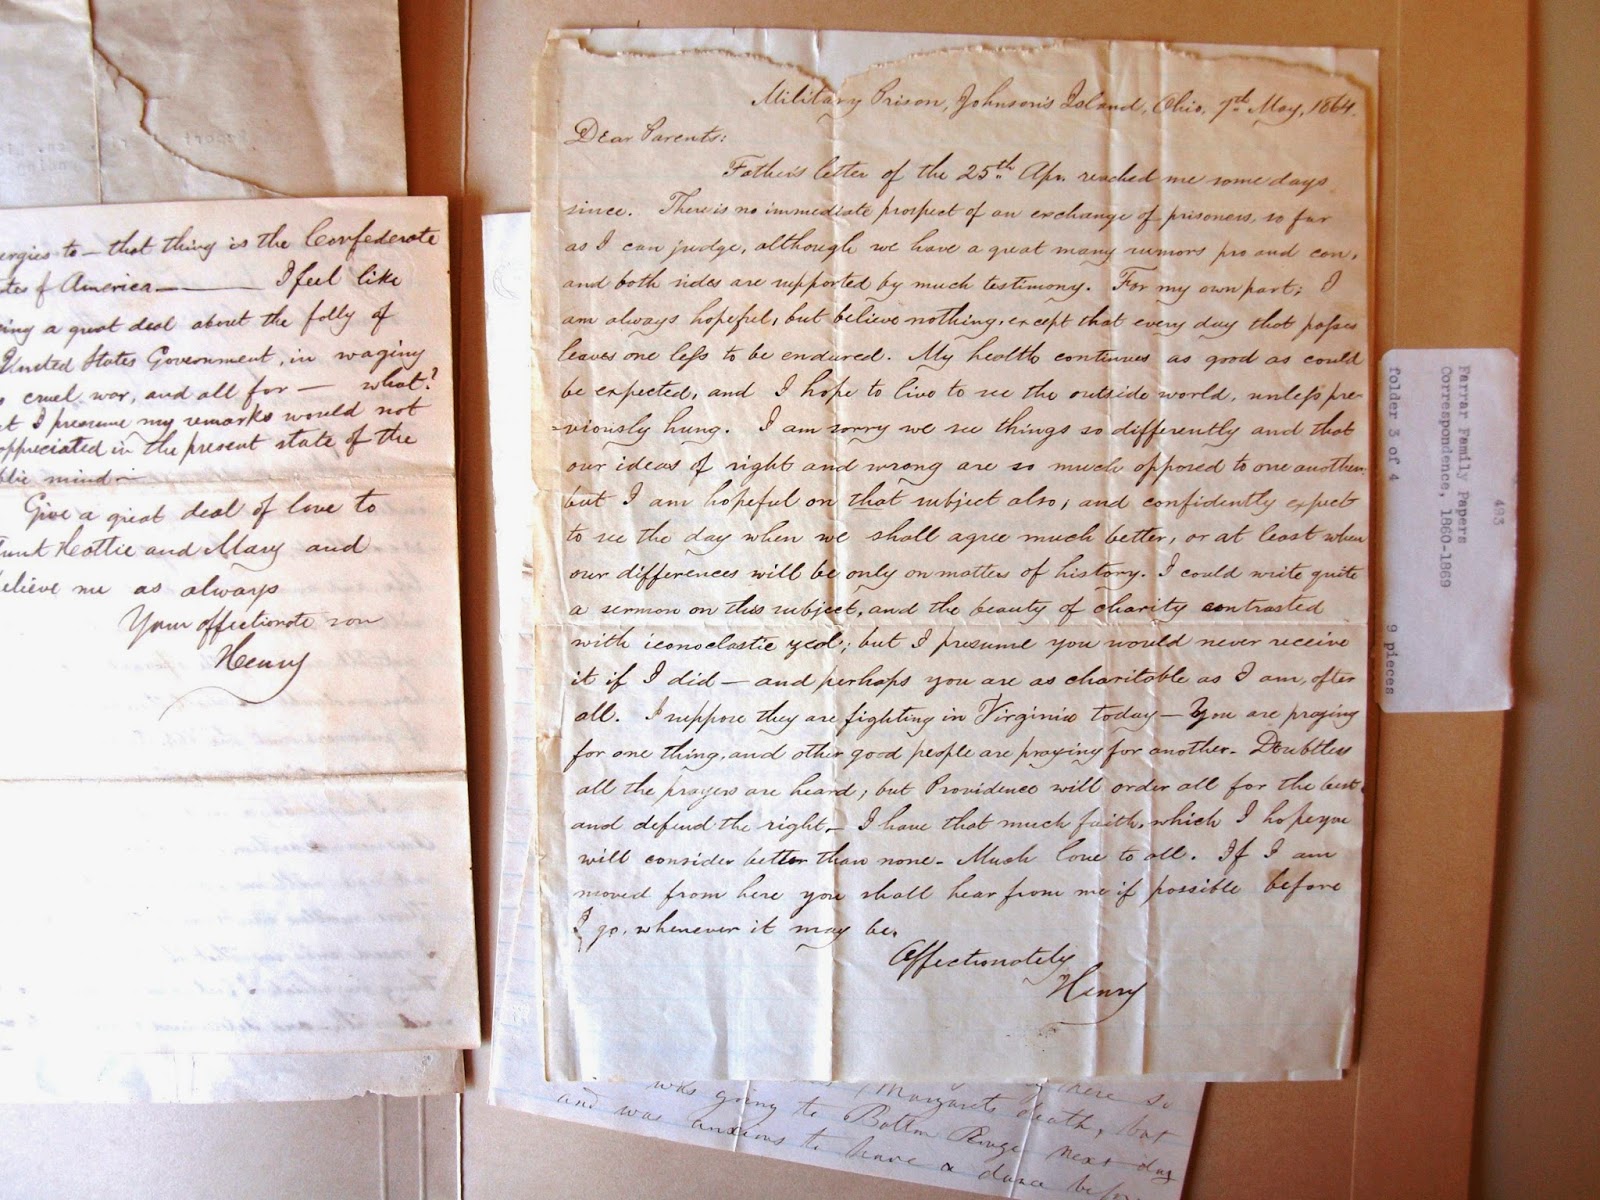 ergies to — that thing is the Confederate
tes of America — I feel like
ing a great deal about the folly of
United States Government, in waging
s cruel war, and all for — what?
t I presume my remarks would not
appreciated in the present state of the
blic mind —
Give a great deal of love to
Aunt Hattie and Mary and
elieve me as always
Your affectionate son
Henry
Military Prison, Johnson's Island, Ohio, 7th May, 1864.
Dear Parents:
Father's letter of the 25th Apr. reached me some days
since. There is no immediate prospect of an exchange of prisoners, so far
as I can judge, although we have a great many rumors pro and con,
and both sides are supported by much testimony. For my own part, I
am always hopeful, but believe nothing, except that every day that passes
leaves one less to be endured. My health continues as good as could
be expected, and I hope to live to see the outside world, unless pre-
-viously hung. I am sorry we see things so differently and that
our ideas of right and wrong are so much opposed to one another,
but I am hopeful on that subject also, and confidently expect
to see the day when we shall agree much better, or at least when
our differences will be only on matters of history. I could write quite
a sermon on this subject, and the beauty of charity contrasted
with iconoclastic zeal; but I presume you would never receive
it if I did — and perhaps you are as charitable as I am, after
all. I suppose they are fighting in Virginia today — You are praying
for one thing, and other good people are praying for another. Doubtless
all the prayers are heard; but Providence will order all for the best
and defend the right. I have that much faith, which I hope you
will consider better than none. Much love to all. If I am
moved from here you shall hear from me if possible before
I go, whenever it may be.
Affectionately
Henry
Margarets death, but
was going to Batton Rouge next day
and was anxious to have a dance
493
Farrar Family Papers
Correspondence, 1860-1869
folder 3 of 4 9 pieces